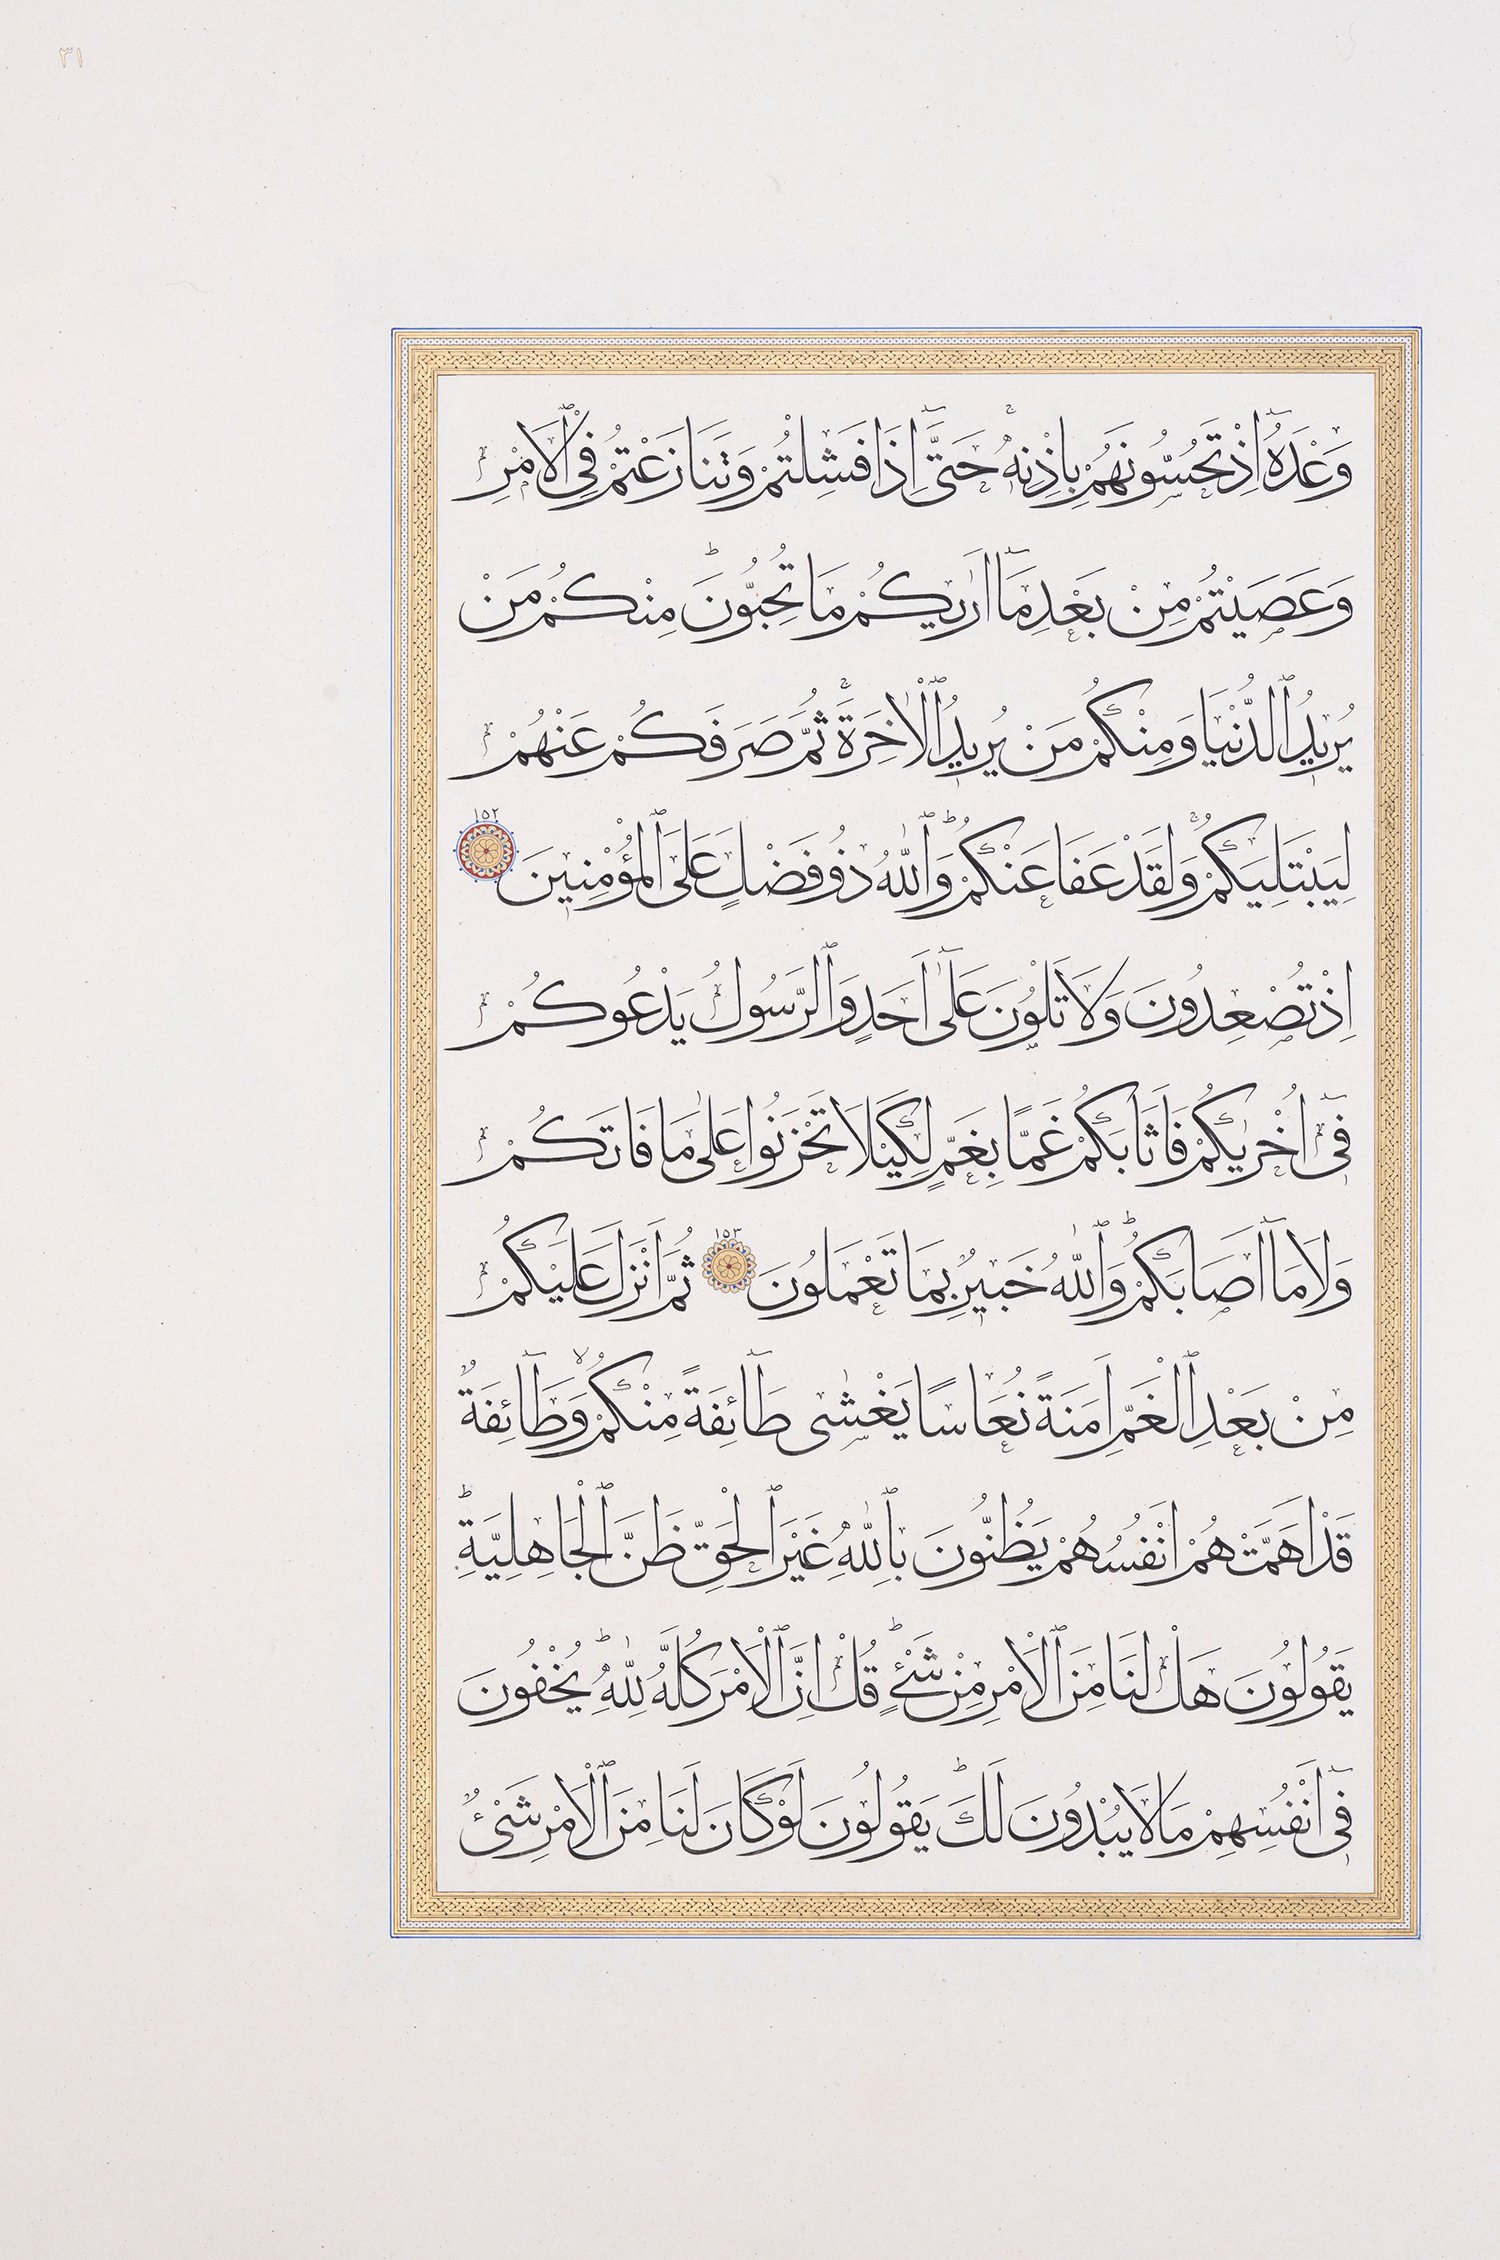 ٣١
وَعْدَهُٓ اِذْ تَحُسُّونَهُمْ بِاِذْنِهٖۚ حَتّٰٓى اِذَا فَشِلْتُمْ وَتَنَازَعْتُمْ فِي ٱلْاَمْرِ
وَعَصَيْتُمْ مِنْ بَعْدِ مَٓا اَرٰيكُمْ مَا تُحِبُّونَۜ مِنْكُمْ مَنْ
يُرِيدُ ٱلدُّنْيَا وَمِنْكُمْ مَنْ يُرِيدُ ٱلْاٰخِرَةَۚ ثُمَّ صَرَفَكُمْ عَنْهُمْ
لِيَبْتَلِيَكُمْۚ وَلَقَدْ عَفَا عَنْكُمْۜ وَٱللّٰهُ ذُو فَضْلٍ عَلَى ٱلْمُؤْمِنِينَ ١٥٢
اِذْ تُصْعِدُونَ وَلَا تَلْوُنَ عَلٰٓى اَحَدٍ وَٱلرَّسُولُ يَدْعُوكُمْ
فِٓي اُخْرٰيكُمْ فَاَثَابَكُمْ غَمًّا بِغَمٍّ لِكَيْلَا تَحْزَنُوا عَلٰى مَا فَاتَكُمْ
وَلَا مَٓا اَصَابَكُمْۜ وَٱللّٰهُ خَبِيرٌ بِمَا تَعْمَلُونَ ١٥٣ ثُمَّ اَنْزَلَ عَلَيْكُمْ
مِنْ بَعْدِ ٱلْغَمِّ اَمَنَةً نُعَاسًا يَغْشٰى طَٓائِفَةً مِنْكُمْۙ وَطَٓائِفَةٌ
قَدْ اَهَمَّتْهُمْ اَنْفُسُهُمْ يَظُنُّونَ بِٱللّٰهِ غَيْرَ ٱلْحَقِّ ظَنَّ ٱلْجَاهِلِيَّةِۜ
يَقُولُونَ هَلْ لَنَا مِنَ ٱلْاَمْرِ مِنْ شَيْءٍۜ قُلْ اِنَّ ٱلْاَمْرَ كُلَّهُ لِلّٰهِۜ يُخْفُونَ
فِٓي اَنْفُسِهِمْ مَا لَا يُبْدُونَ لَكَۜ يَقُولُونَ لَوْ كَانَ لَنَا مِنَ ٱلْاَمْرِ شَيْءٌ